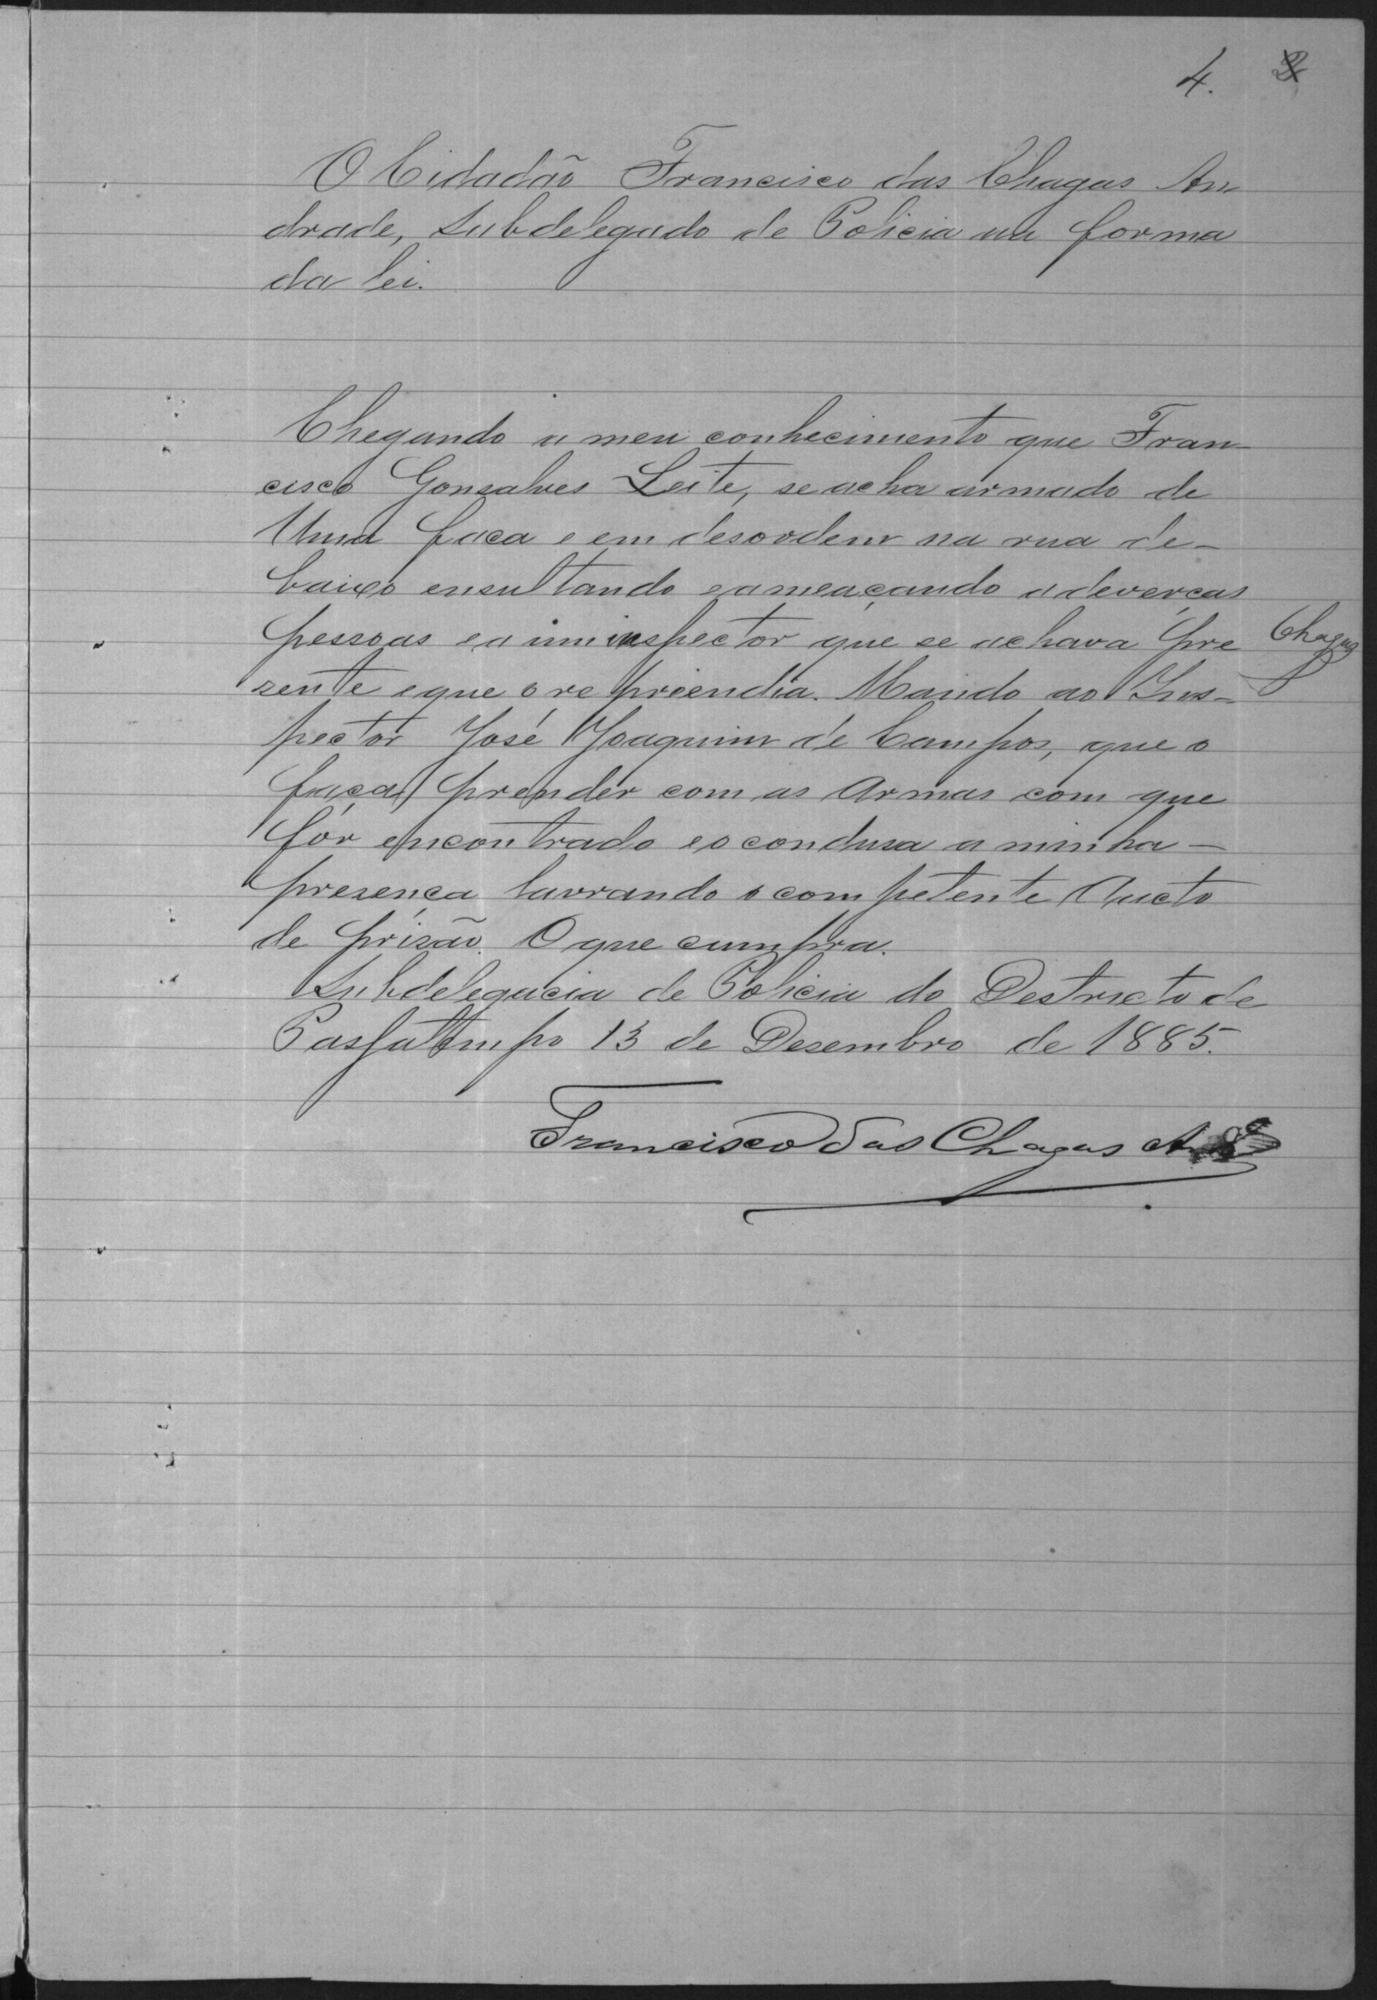 4.
O Cidadão Francisco das Chagas An-
drade, Subdelegado de Policia na forma
da lei.
Chegando a meu conhecimento que Fran-
cisco Gonsalves Leite, se acha armado de
Uma faca e em desordem na rua de-
baixo ensultando e ameaçando a devercas
pessoas e a um inspector que se achava pre
Chagas
zente e que o repriendia. Mando ao Ins-
pector José Joaquim de Campos, que o
faça prender com as Armas com que
fôr encontrado e o condusa a minha -
presença lavrando o competente Aucto
de prizão. O que cumpra.
Subdelegacia de Policia do Destricto de
Passatempo 13 de Desembro de 1885.
Francisco das Chagas